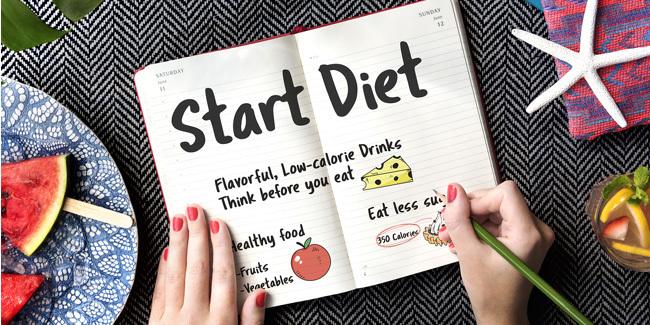 SATURDAY
June
11
SUNDAY
June
12
Start Diet
Flavorful, Low-calorie Drinks
Think before you eat
Healthy food
-Fruits
-Vegetables
Eat less
350 Calories